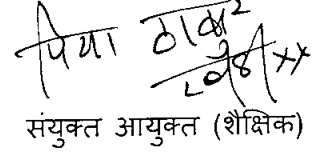 पिया ठाकुर
संयुक्त आयुक्त (शैक्षिक)